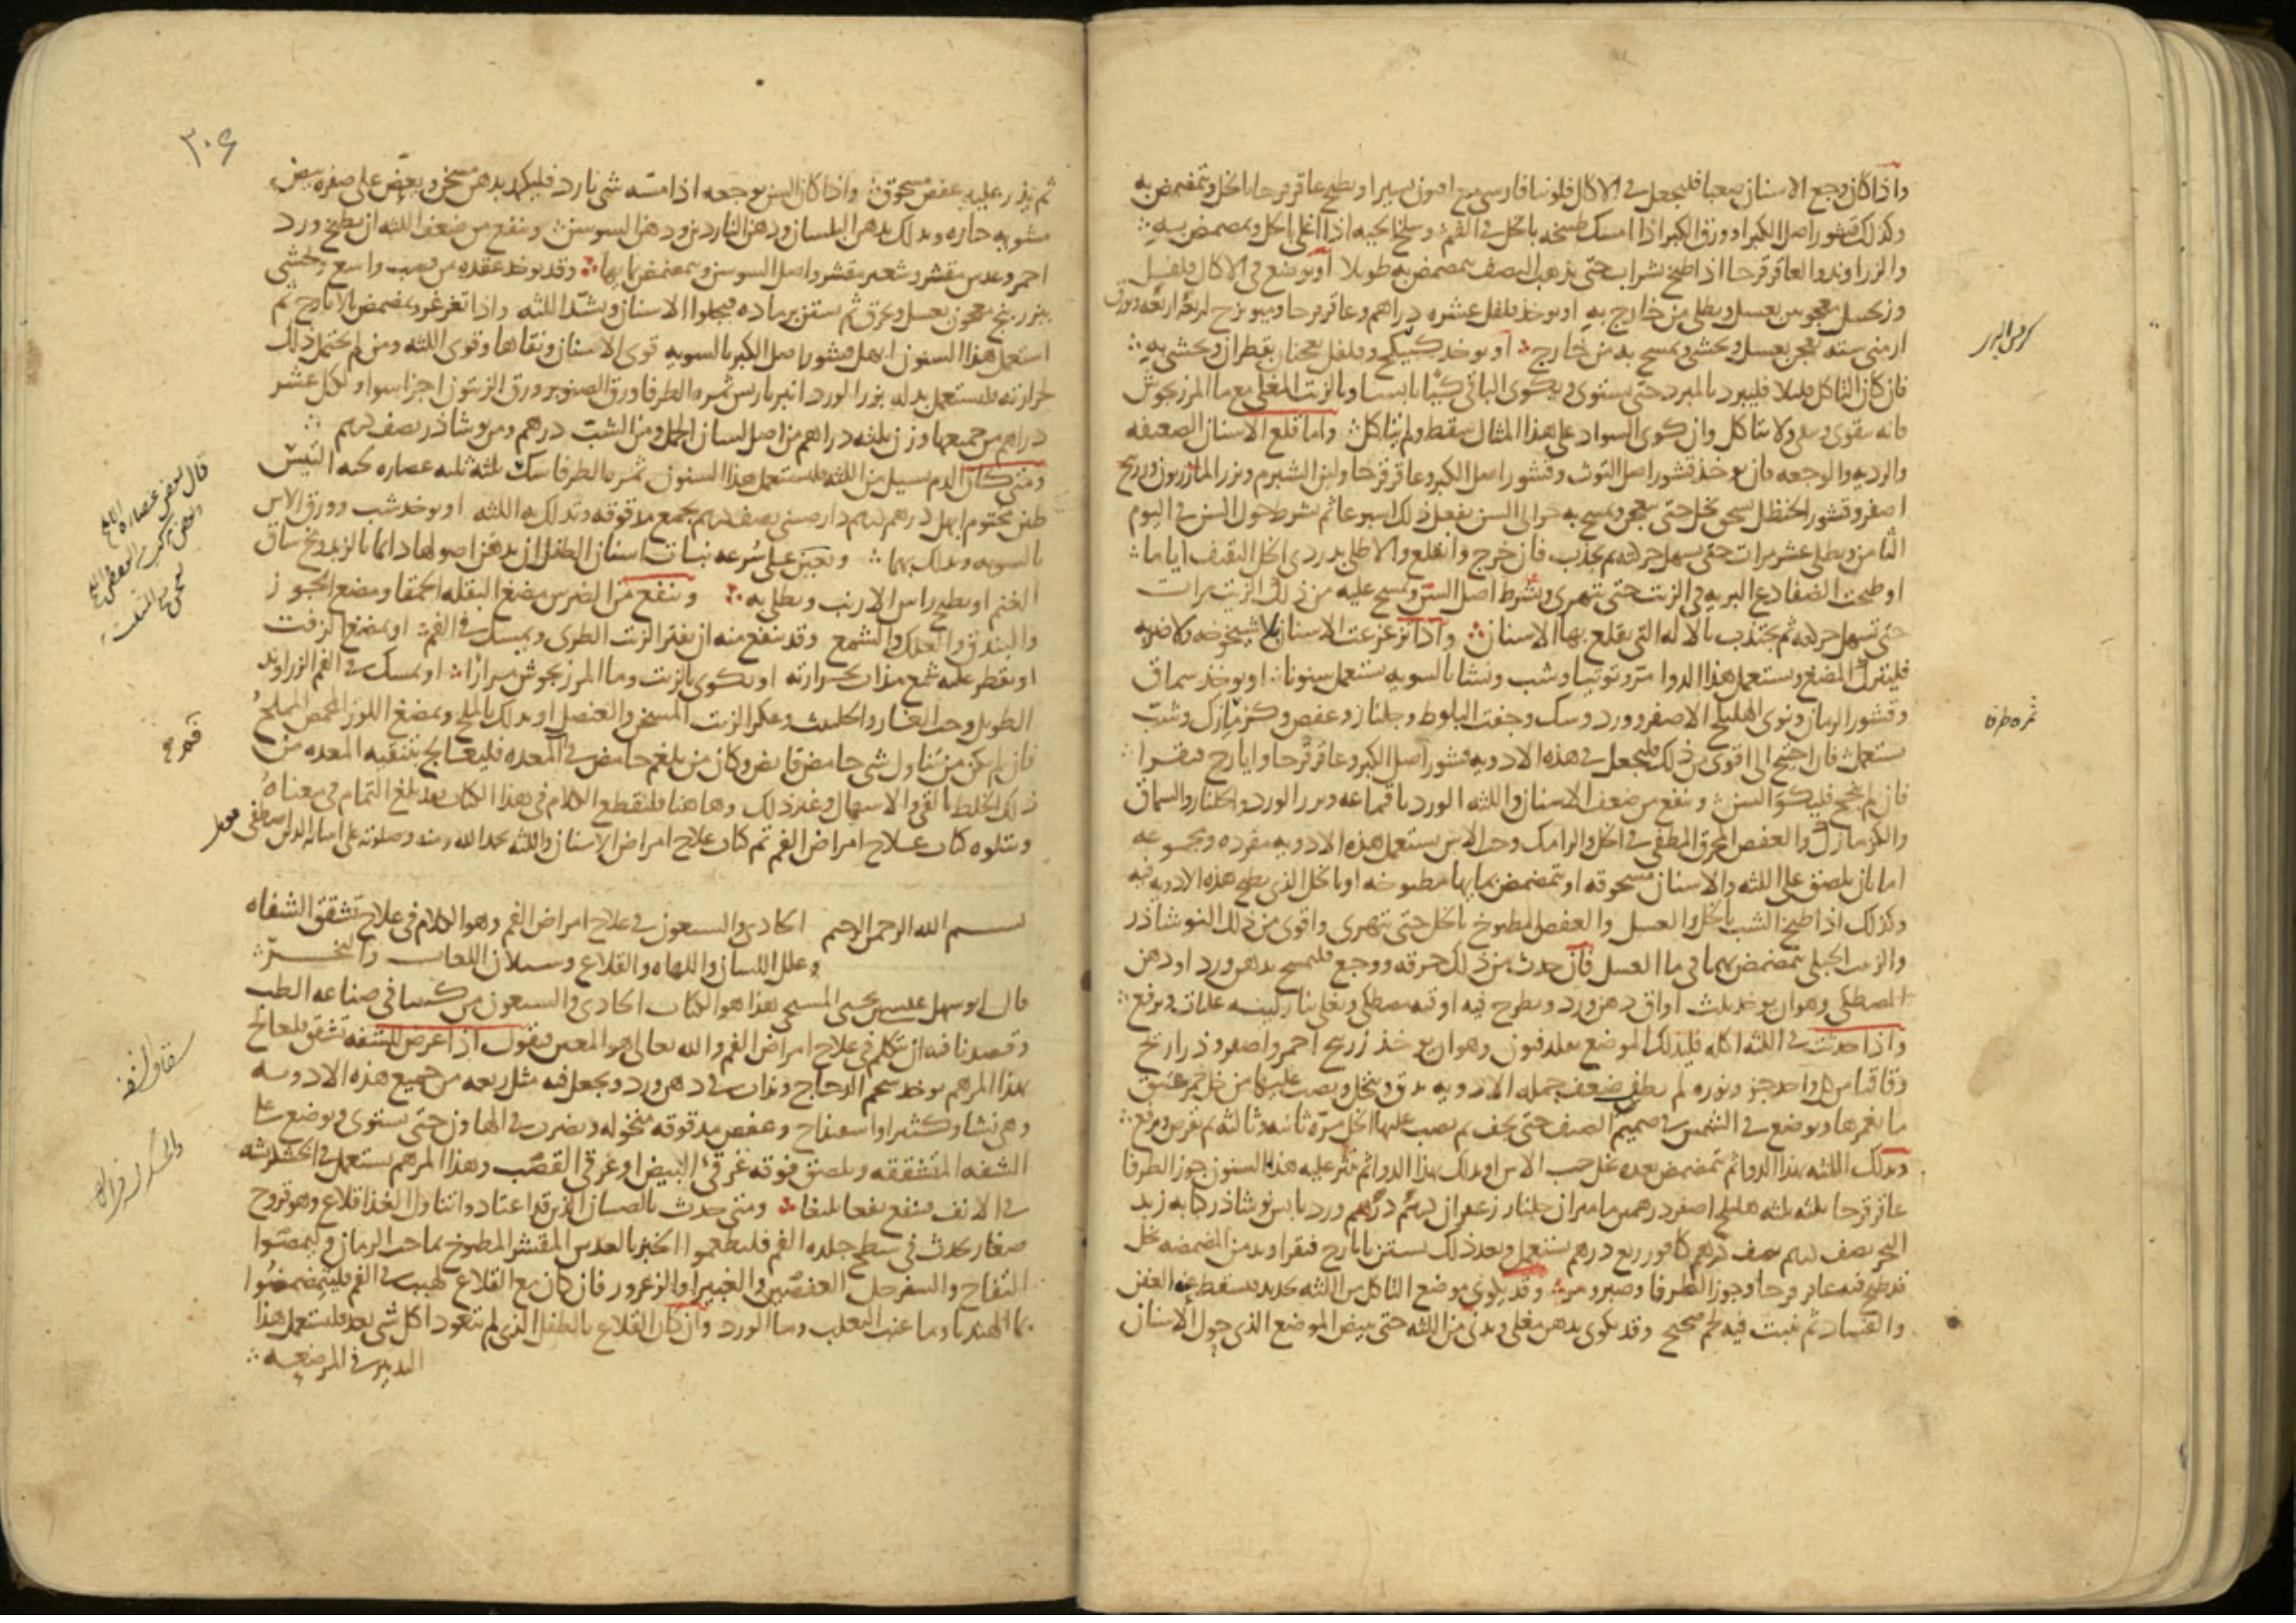 واذا كان وجع الاسنان صعبا فليجعل في الاكال فلونيا فارسي مع افيون يسير او يطبخ عاقرقرحا بالخل ويتمضمض به
وكذلك قشور اصل الكبر او ورق الكبر اذا امسك طبيخه بالخل في الفم وسلخ الحيه اذا اغلي بالخل ويمضمض به
والزراوند والعاقرقرحا اذا طبخ بشراب حتى يذهب النصف يتمضمض به طويلا او يوضع في الاكال فلفل
معجونين بعسل ويطلى من خارج به او يوخذ فلفل عشره دراهم وعاقرقرحا وميويزج اربعه اربعه وبورق
ارمني سته يعجن بعسل ويحشى ويمسح به من خارج او يوخذ كبيكج وفلفل يعجنان بقطران ويحشى به
فان كان التاكل قليلا فليبرد بالمبرد حتى يستوي ويكوى الباقي كيا يابسا وبالزيت المغلي مع ما المرزجوش
فانه يقوى ويبقى ولا يتاكل وان كوي السواد على هذا المثال سقط ولم يتاكل واما قلع الاسنان الضعيفه
والرديه والوجعه فان يوخذ قشور اصل التوث وقشور اصل الكبر وعاقرقرحا ولبن الشبرم وبزر المازريون وزرنيخ
اصفر وقشور الحنظل يسحق بخل حتى يعجن ويمسح به حوالي السن يفعل ذلك اسبوعا ثم يشرط حول السن في اليوم
الثامن ويطلى عشر مرات حتى يسهل حركته ثم يجذب فان خرج وانقلع والا طلي بدردي الخل الثقيف اياما
او طبخت الضفادع البريه في الزيت حتى يتهرى ويشرط اصل السن ويمسح عليه من ذلك الزيت مرات
حتى تسهل حركته ثم يجتذب بالاله التي يقلع بها الاسنان واذا تزعزعت الاسنان بلا شيخوخه ولا ضربه
فليترك المضغ ويستعمل هذا الدوا مر وتوتيا وشب ونشا بالسويه يستعمل سنونا او يوخذ سماق
وقشور الرمان ونوى الهليلج الاصفر وورد وسك وجفت البلوط وجلنار وعفص وكزمازك وشب
يستعمل فان احتيج الى اقوى من ذلك فليجعل في هذه الادويه قشور اصل الكبر وعاقرقرحا وايارج فيقرا
فان لم ينجح فليكو السن وينفع من ضعف الاسنان واللثه الورد باقماعه وبزر الورد والجلنار والسماق
والكزمازك والعفص المحرق المطفى في الخل والرامك وحب الاس يستعمل هذه الادويه مفرده ومجموعه
اما بان يلصق على اللثه والاسنان مسحوقه او يتمضمض بمايها مطبوخه او بالخل الذي يطبخ هذه الادويه فيه
وكذلك اذا طبخ الشب بالخل والعسل والعفص المطبوخ بالخل حتى يتهرى واقوى من ذلك النوشاذر
والزيت الجبلي يتمضمض بهما في ما العسل فان حدث من ذلك حرقه ووجع فليمسح بدهن ورد او دهن
المصطكى وهو ان يوخذ ثلث اواق دهن ورد ويطرح فيه اوقيه مصطكى ويغلى بنار لينه غليات ويرفع
واذا حدثت في اللثه اكله فليدلك الموضع بقلدفيون وهو ان يوخذ زرنيخ احمر واصفر وذراريح
واقاقيا من كل واحد جزو ونوره لم يطفى ضعف جمله الادويه يدق وينخل ويصب عليها من خل خمر عتيق
ما يغمرها ويوضع في الشمس في صميم الصيف حتى يجف ثم يصب عليها الخل مره ثانيه وثالثه ثم يقرص ويرفع
ويدلك اللثه بهذا الدوا ثم يتمضمض بعده بخل حب الاس او يدلك بهذا الدوا ثم ينثر عليه هذا السنون جوز الطرفا
عاقرقرحا ثلثه ثلثه هليلج اصفر درهمين ماميران جلنار زعفران درهم درهم ورد يابس نوشاذر كبابه زبد
البحر نصف درهم نصف درهم كافور ربع درهم يستعمل وبعد ذلك يستن بايارج فيقرا وبدمن المضمضه بخل
قد طبخ فيه عاقرقرحا وجوز الطرفا وصبر ومر وقد يكوى موضع التاكل من اللثه بحديد فيسقط عنه العفن
والفساد ثم ينبت فيه لحم صحيح وقد يكوى بدهن مغلي ويدنى من اللثه حتى يبيض الموضع الذي حول الاسنان
ثمره طرفا
٣٠٤
ثم يذر عليه عفص مسحوق واذا كان السن يوجعه اذا مسه شي بارد فليكمد بدهن مسخن ويعض على صفره بيض
مشويه حاره ويدلك بدهن البلسان ودهن الناردين ودهن السوسن وينفع من ضعف اللثه ان يطبخ ورد
احمر وعدس مقشر وشعير مقشر واصل السوسن ويتمضمض بمايها وقد يوخذ عقده من قصب واسع يحشى
بزرنيخ معجون بعسل ويحرق ثم يستن برماده فيجلوا الاسنان ويشد اللثه واذا تغرغر ويمضمض بالايارج ثم
استعمل هذا السنون ابهل قشور اصل الكبر بالسويه قوى الاسنان ونقاها وقوى اللثه ومن لم يحتمل ذلك
لحرارته فليستعمل بدله بزر الورد انبرباريس ثمره الطرفا ورق الصنوبر ورق الزيتون اجزا سوا ولكل عشر
دراهم من جميعها وزن ثلثه دراهم من اصل لسان الحمل ومن الشب درهم ومن نوشاذر نصف درهم
ومتى كان الدم يسيل من اللثه فليستعمل هذا السنون ثمره الطرفا سك ثلثه ثلثه عصاره لحيه التيس
طين مختوم ابهل درهم درهم دارصيني نصف درهم يجمع مدقوقه ويدلك به اللثه او يوخذ شب وورق الاس
بالسويه ويدلك بهما ويعين على سرعه نبات اسنان الطفل ان يدهن اصولها دايما بالزبد ومخ ساق
الغنم او يطبخ راس الارنب ويطلى به وينفع من الضرس مضغ البقله الحمقا ومضغ الجوز
والبندق والعلك والشمع وقد ينفع منه ان يفتر الزيت الطري ويمسك في الفم او يمضغ الزفت
او يقطر عليه شمع مذاب بحرارته او يكوى بالزيت وما المرزجوش مرارا او يمسك في الفم الزراوند
الطويل وحب الغار والحلتيت وعكر الزيت المسخن والعنصل او يدلك بالملح ويمضغ اللوز المحمص المملح
فان لم يكن من تناول شي حامض قابض وكان من بلغم حامض في المعده فليعالج بتنقيه المعده من
ذلك الخلط بالقي والاسهال وغير ذلك وهاهنا فلنقطع الكلام في هذا الكتاب بعد بلغ التمام في معناه
ويتلوه كتاب علاج امراض الفم تم كتاب علاج امراض الاسنان واللثه بحمد الله ومنه وصلوته على انبيايه الذين اصطفى
بسم الله الرحمن الرحيم الحادي والسبعون في علاج امراض الفم وهو الكلام في علاج تشقق الشفاه
وعلل اللسان واللهاه والقلاع وسيلان اللعاب والبخر
قال ابو سهل عيسى بن يحيى المسيحي هذا هو الكتاب الحادي والسبعون من كتبنا في صناعه الطب
وقصدنا فيه ان نتكلم في علاج امراض الفم والله تعالى هو المعين فنقول اذا عرض للشفه تشقق فليعالج
بهذا المرهم يوخذ شحم الدجاج ويذاب في دهن ورد ويجعل فيه مثل ربعه من جميع هذه الادويه
وهي نشا وكثيرا واسفيذاج وعفص مدقوقه منخوله ويضرب في الهاون حتى يستوي ويوضع على
الشفه المتشققه ويلصق فوقه غرقئ البيض او غرقئ القصب وهذا المرهم يستعمل في الخشكريشه
في الانف فينفع نفعا بليغا ومتى حدث بالصبيان الذين قد اعتادوا تناول الغذا قلاع وهو قروح
صغار تحدث في سطح جلده الفم فليطعموا الخبز بالعدس المقشر المطبوخ بما حب الرمان وليمصوا
التفاح والسفرجل العفصين والغبيرا والزعرور فان كان مع القلاع لهيب في الفم فليتمضمضوا
بما الهندبا وما عنب الثعلب وما الورد وان كان القلاع بالطفل الذي لم يتعود اكل شي بعد فليستعمل هذا
التدبير في المرضعه